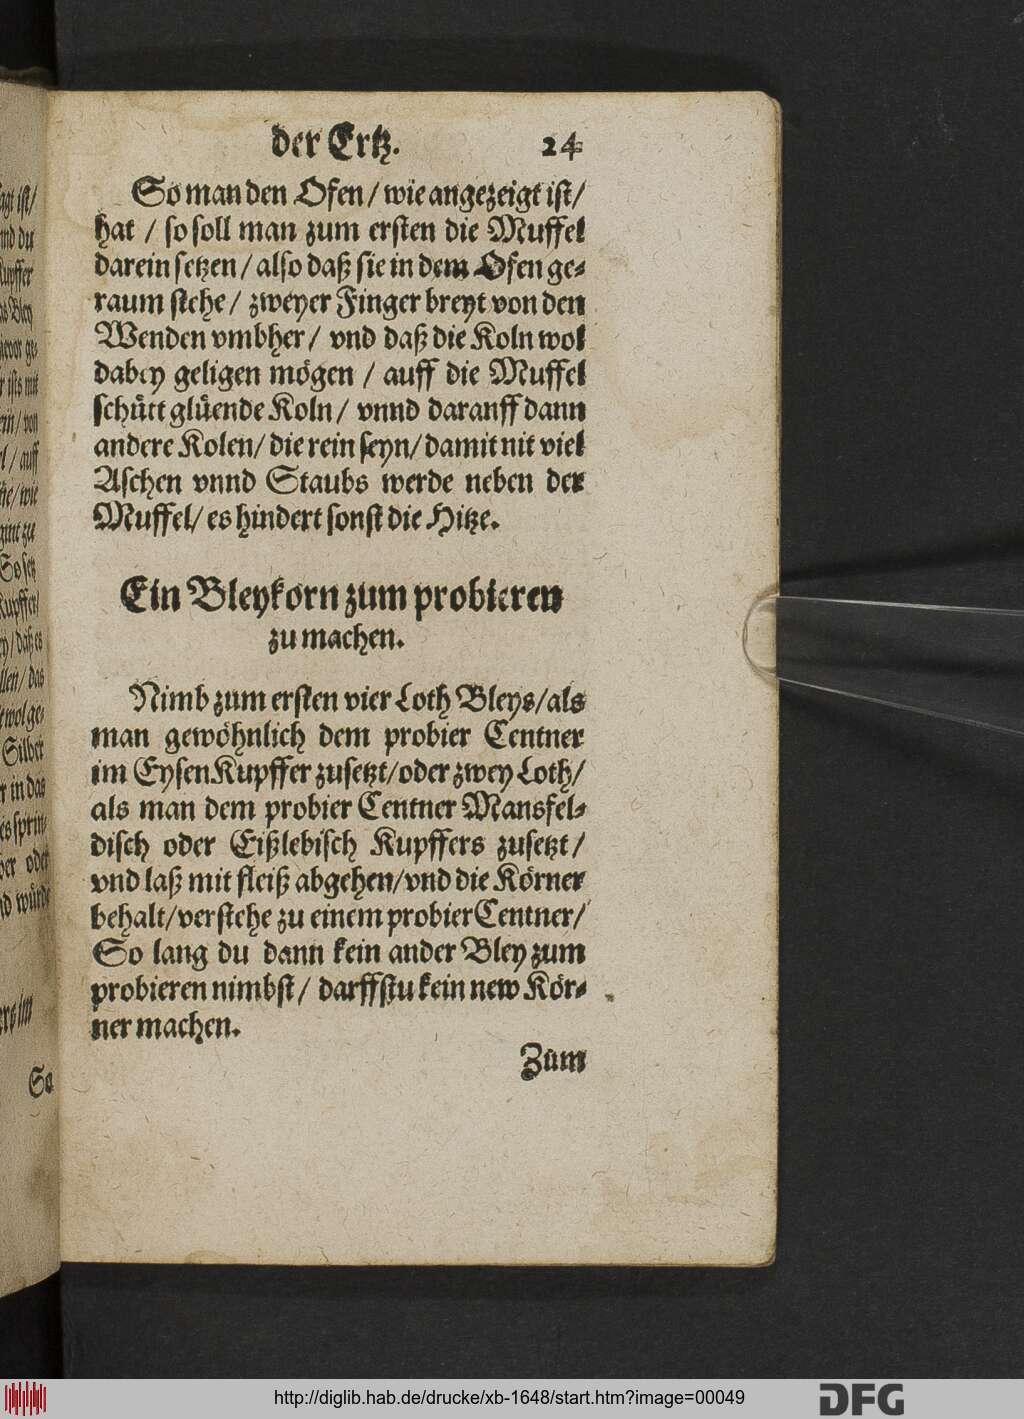 der Ertz. 24
So man den Ofen / wie angezeigt ist /
hat / so soll man zum ersten die Muffel
darein setzen / also daß sie in dem Ofen ge-
raum stehe / zweyer Finger breyt von den
Wenden vmbher / vnd daß die Koln wol
dabey geligen mögen / auff die Muffel
schütt glüende Koln / vnnd daranff dann
andere Kolen / die rein seyn / damit nit viel
Aschen vnnd Staubs werde neben der
Muffel / es hindert sonst die Hitze.
Ein Bleykorn zum probieren
zu machen.
Nimb zum ersten vier Loth Bleys / als
man gewöhnlich dem probier Centner
im Eysen Kupffer zusetzt / oder zwey Loth /
als man dem probier Centner Mansfel-
disch oder Eißlebisch Kupffers zusetzt /
vnd laß mit fleiß abgehen / vnd die Körner
behalt / verstehe zu einem probier Centner /
So lang du dann kein ander Bley zum
probieren nimbst / darffstu kein new Kör-
ner machen.
Zum
http://diglib.hab.de/drucke/xb-1648/start.htm?image=00049
DFG